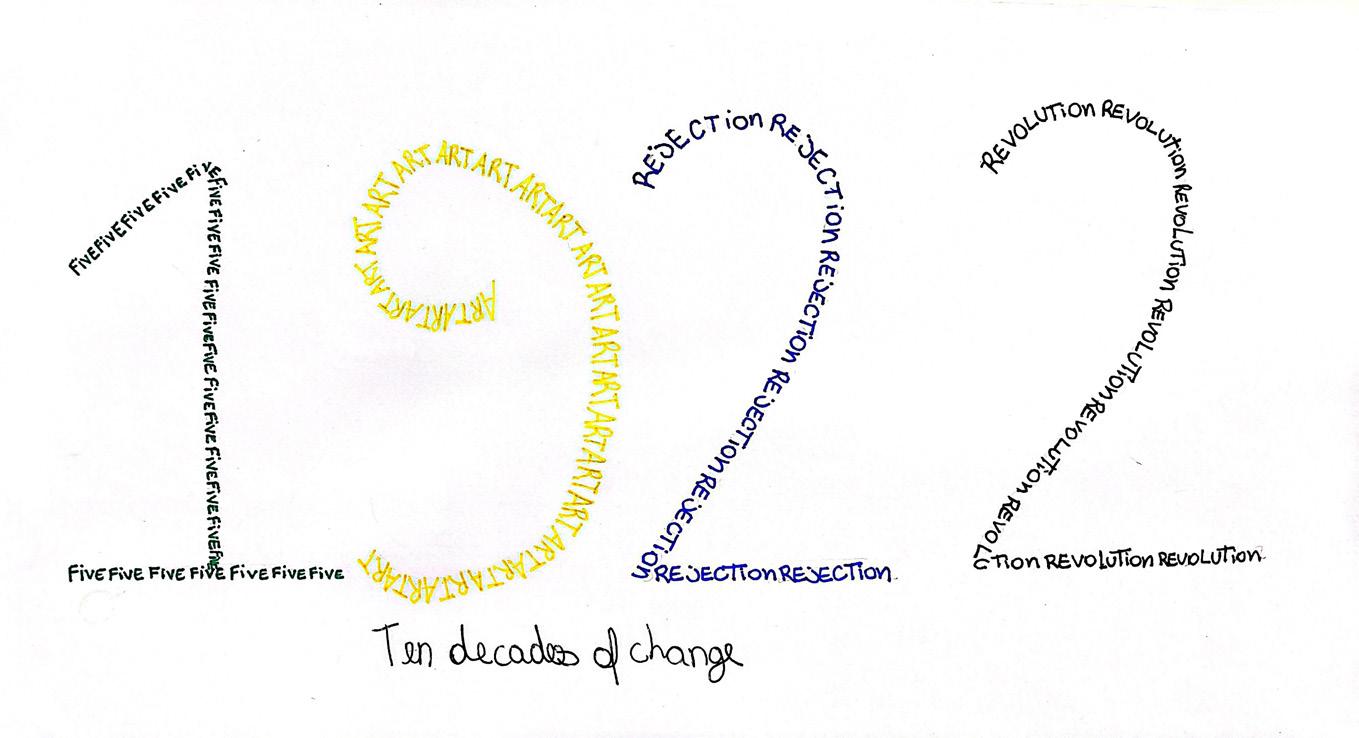 FivEFivEFivEFivE Fiv
EFivE FivE FivE FivE FivEFivE FivE FivE FivE FivEFivEFivE
FivE FivE FivE FivE FivE FivE FivE
ART ART ART ART ART ART ART ART ART ART ART ART ART ART ART ART ART ART ART ART ART ART ART ART ART ART ART
REJECTion REJECTion REJECTion REJECTion REJECTion
REJECTion REJECTion
REVOLUTion REVOLUTion REVOLUTion REVOLUTion REVOLUTion REVOLU
Tion REVOLUTion REVOLUTion
Ten decades of change